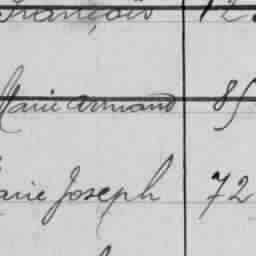 François 12
Marie Armand 85
Marie Joseph 72